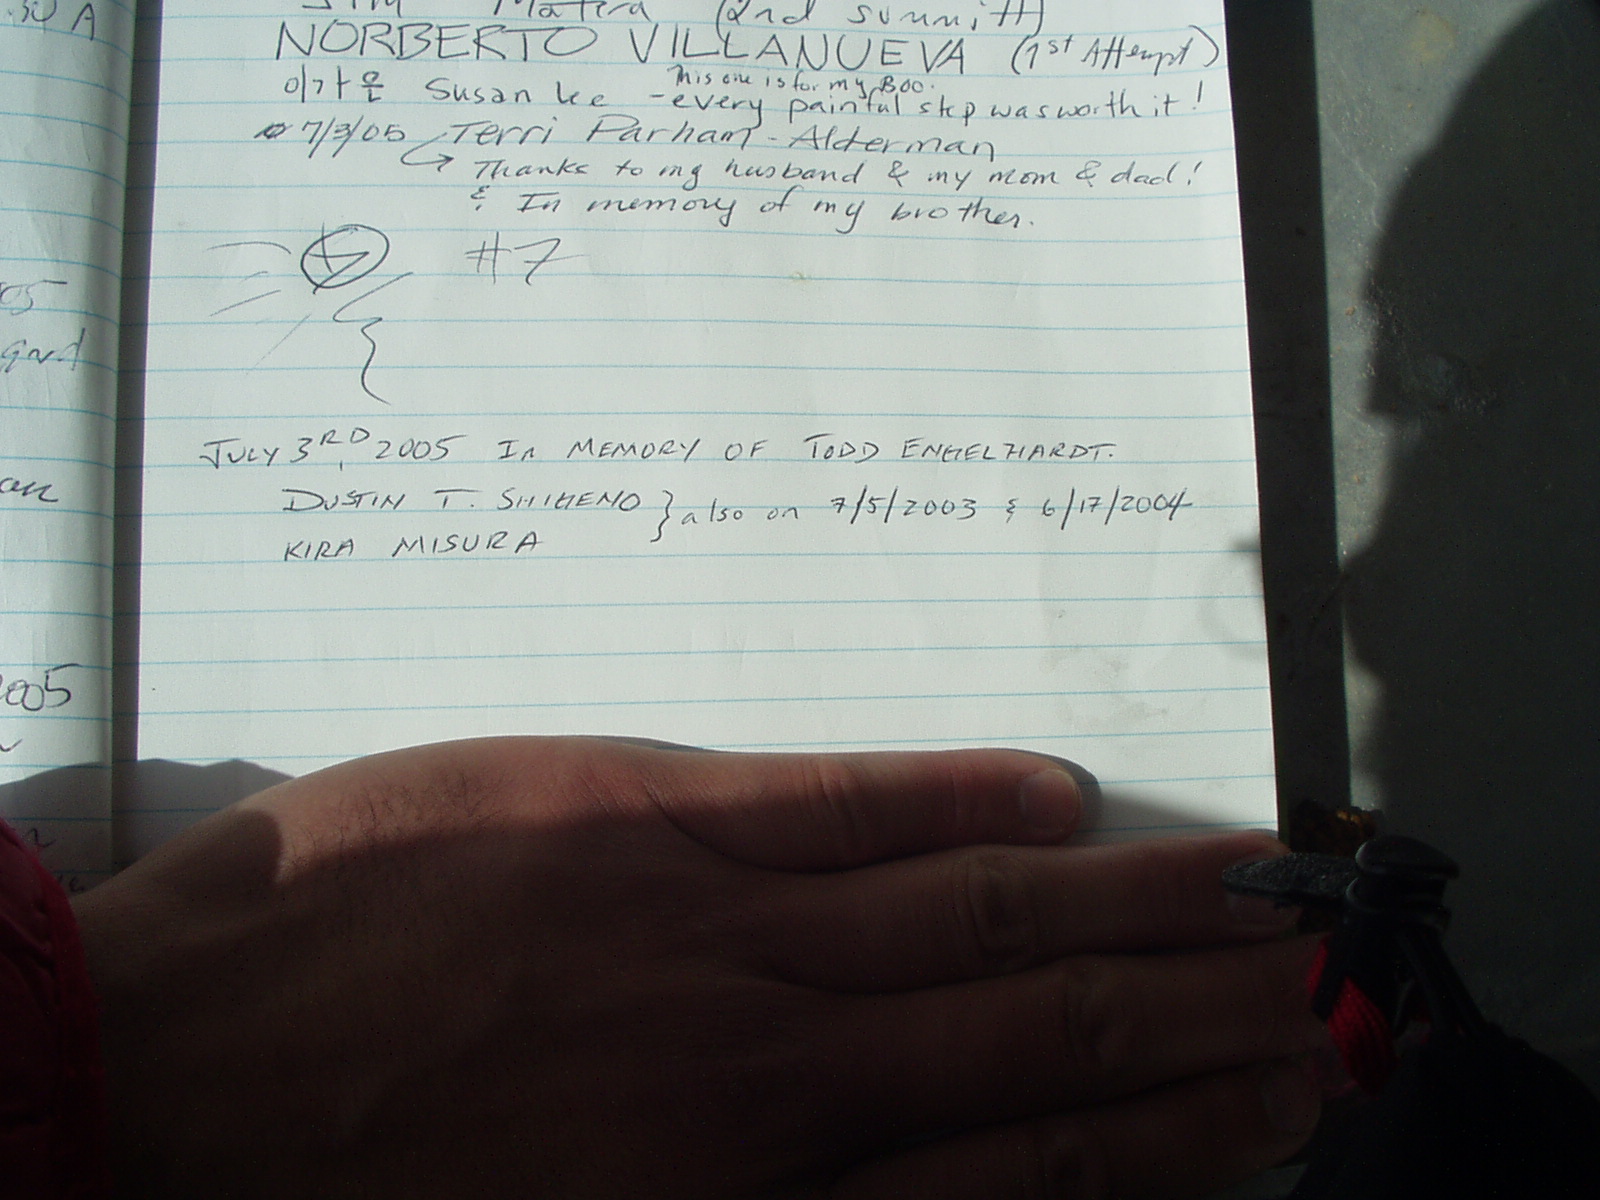 (2nd summitt)
NORBERTO VILLANUEVA (1st Attempt)
This one is for my Boo.
이가은 Susan Lee - every painful step was worth it!
7/3/05 Terri Parham-Alderman
Thanks to my husband & my mom & dad!
& In memory of my brother.
#7
JULY 3RD, 2005 In MEMORY OF TODD ENGELHARDT.
DUSTIN T. SHIGENO } also on 7/5/2003 & 6/17/2004
KIRA MISURA